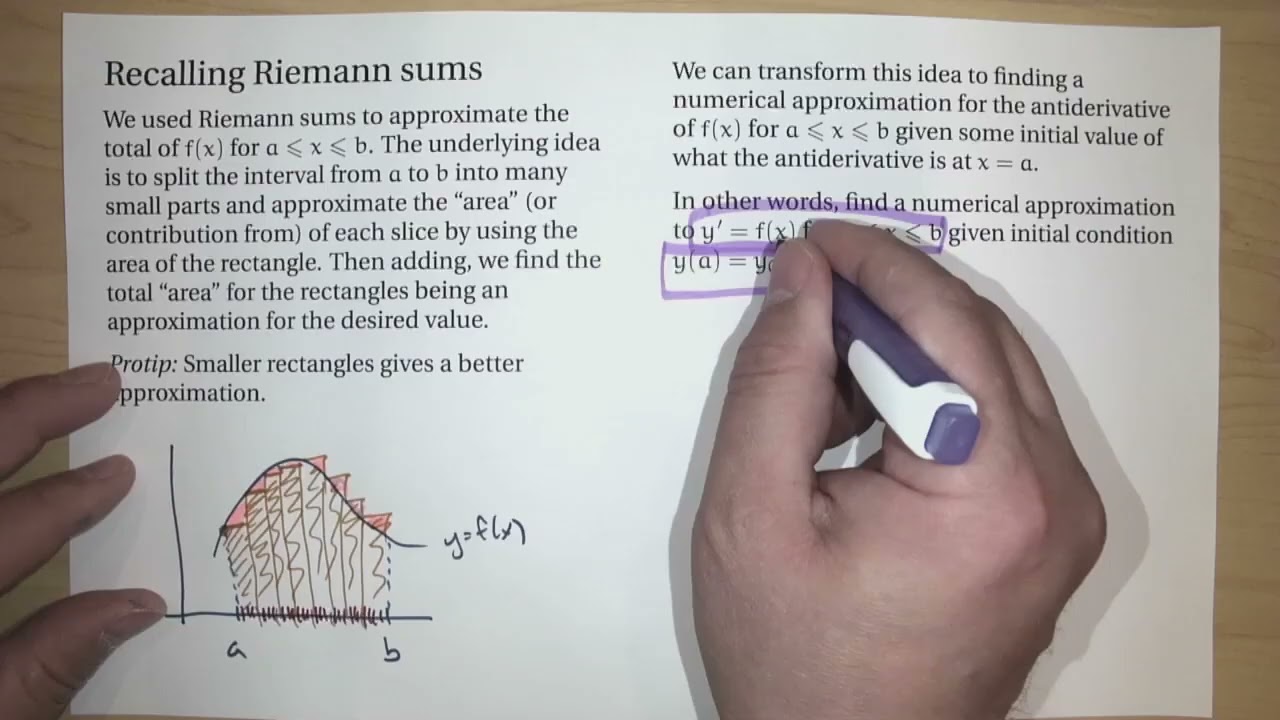 Recalling Riemann sums
We used Riemann sums to approximate the
total of f(x) for a ⩽ x ⩽ b. The underlying idea
is to split the interval from a to b into many
small parts and approximate the “area” (or
contribution from) of each slice by using the
area of the rectangle. Then adding, we find the
total “area” for the rectangles being an
approximation for the desired value.
Protip: Smaller rectangles gives a better
approximation.
y=f(x)
a b
We can transform this idea to finding a
numerical approximation for the antiderivative
of f(x) for a ⩽ x ⩽ b given some initial value of
what the antiderivative is at x = a.
In other words, find a numerical approximation
to y′ = f(x) x ⩽ b given initial condition
y(a) =